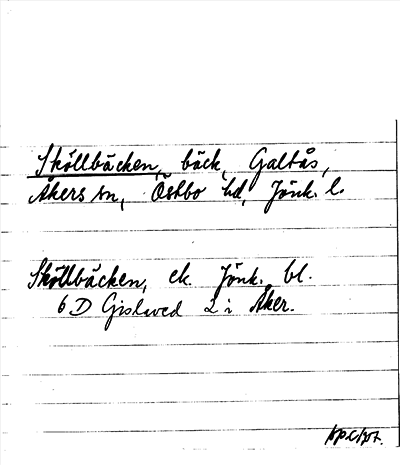 Sköllbäcken, bäck, Galtås,
Åkers sn, Östbo hd, Jönk. l.
Sköllbäcken, ek. Jönk. bl.
6 D Gislaved 2 i Åker.